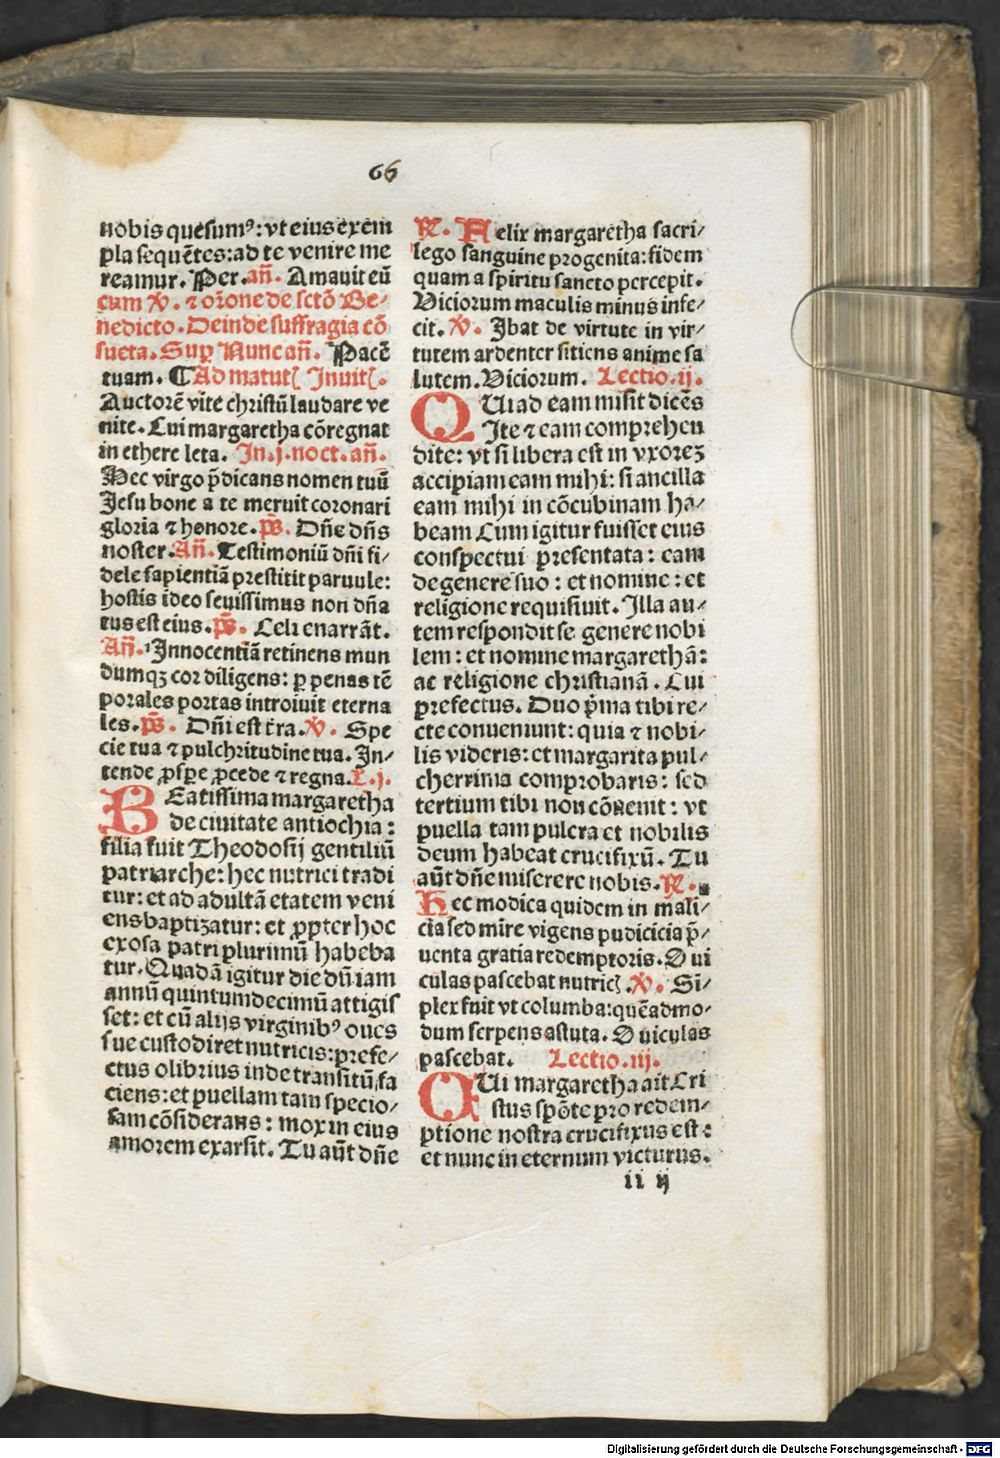 66
nobis quesumꝰ: vt eius exem
pla sequẽtes: ad te venire me
reamur. Per. añ. Amauit eũ
cum ℣. ⁊ or̃one de sctõ Be⸗
nedicto. Deinde suffragia cõ
sueta. Suꝑ Nunc añ. Pacẽ
tuam. ¶ Ad matut̃ Inuit̃.
Auctorẽ vite christũ laudare ve
nite. Cui margaretha cõregnat
in ethere leta. In .j. noct. añ.
Hec virgo p̃dicans nomen tuũ
Jesu bone a te meruit coronari
gloria ⁊ honore. p̃s. Dñe dñs
noster. Añ. Testimoniũ dñi fi⸗
dele sapientiã prestitit paruule:
hostis ideo seuissimus non dña
tus est eius. p̃s. Celi enarrãt.
Añ. Innocentiã retinens mun
dumqꝫ cor diligens: ꝑ penas tẽ
porales portas introiuit eterna
les. p̃s. Dñi est t̃ra. ℣. Spe
cie tua ⁊ pulchritudine tua. In⸗
tende ꝓspe ꝓcede ⁊ regna. L. j.
BEatissima margaretha
de ciuitate antiochia:
filia fuit Theodosij gentiliũ
patriarche: hec nutrici tradi
tur: et ad adultã etatem veni
ens baptizatur: et ꝓpter hoc
exosa patri plurimũ habeba
tur. Quadã igitur die dũ iam
annũ quintumdecimũ attigis
set: et cũ alijs virginibꝰ oues
sue custodiret nutricis: prefe⸗
ctus olibrius inde transitũ fa
ciens: et puellam tam specio⸗
sam cõsiderans: mox in eius
amorem exarsit. Tu aũt dñe
℟. Felix margaretha sacri⸗
lego sanguine progenita: fidem
quam a spiritu sancto percepit.
Viciorum maculis minus infe⸗
cit. ℣. Ibat de virtute in vir⸗
tutem ardenter sitiens anime sa
lutem. Viciorum. Lectio .ij.
QUi ad eam misit dicẽs
Ite ⁊ eam comprehen
dite: vt si libera est in vxorẽ
accipiam eam mihi: si ancilla
eam mihi in cõcubinam ha⸗
beam Cum igitur fuisset eius
conspectui presentata: eam
de genere suo: et nomine: et
religione requisiuit. Illa au⸗
tem respondit se genere nobi
lem: et nomine margarethã:
ac religione christianã. Cui
prefectus. Duo p̃ma tibi re⸗
cte conueniunt: quia ⁊ nobi⸗
lis videris: et margarita pul⸗
cherrima comprobaris: sed
tertium tibi non cõuenit: vt
puella tam pulcra et nobilis
deum habeat crucifixũ. Tu
aũt dñe miserere nobis. ℟.
Hec modica quidem in mali⸗
cia sed mire vigens pudicicia p̃⸗
uenta gratia redemptoris. Oui
culas pascebat nutric̃. ℣. Si⸗
plex fuit vt columba: quẽadmo⸗
dum serpens astuta. Ouiculas
pascebat. Lectio .iij.
QUi margaretha ait Cri
stus spõte pro redem⸗
ptione nostra crucifixus est:
et nunc in eternum victurus.
ii ij
Digitalisierung gefördert durch die Deutsche Forschungsgemeinschaft - DFG